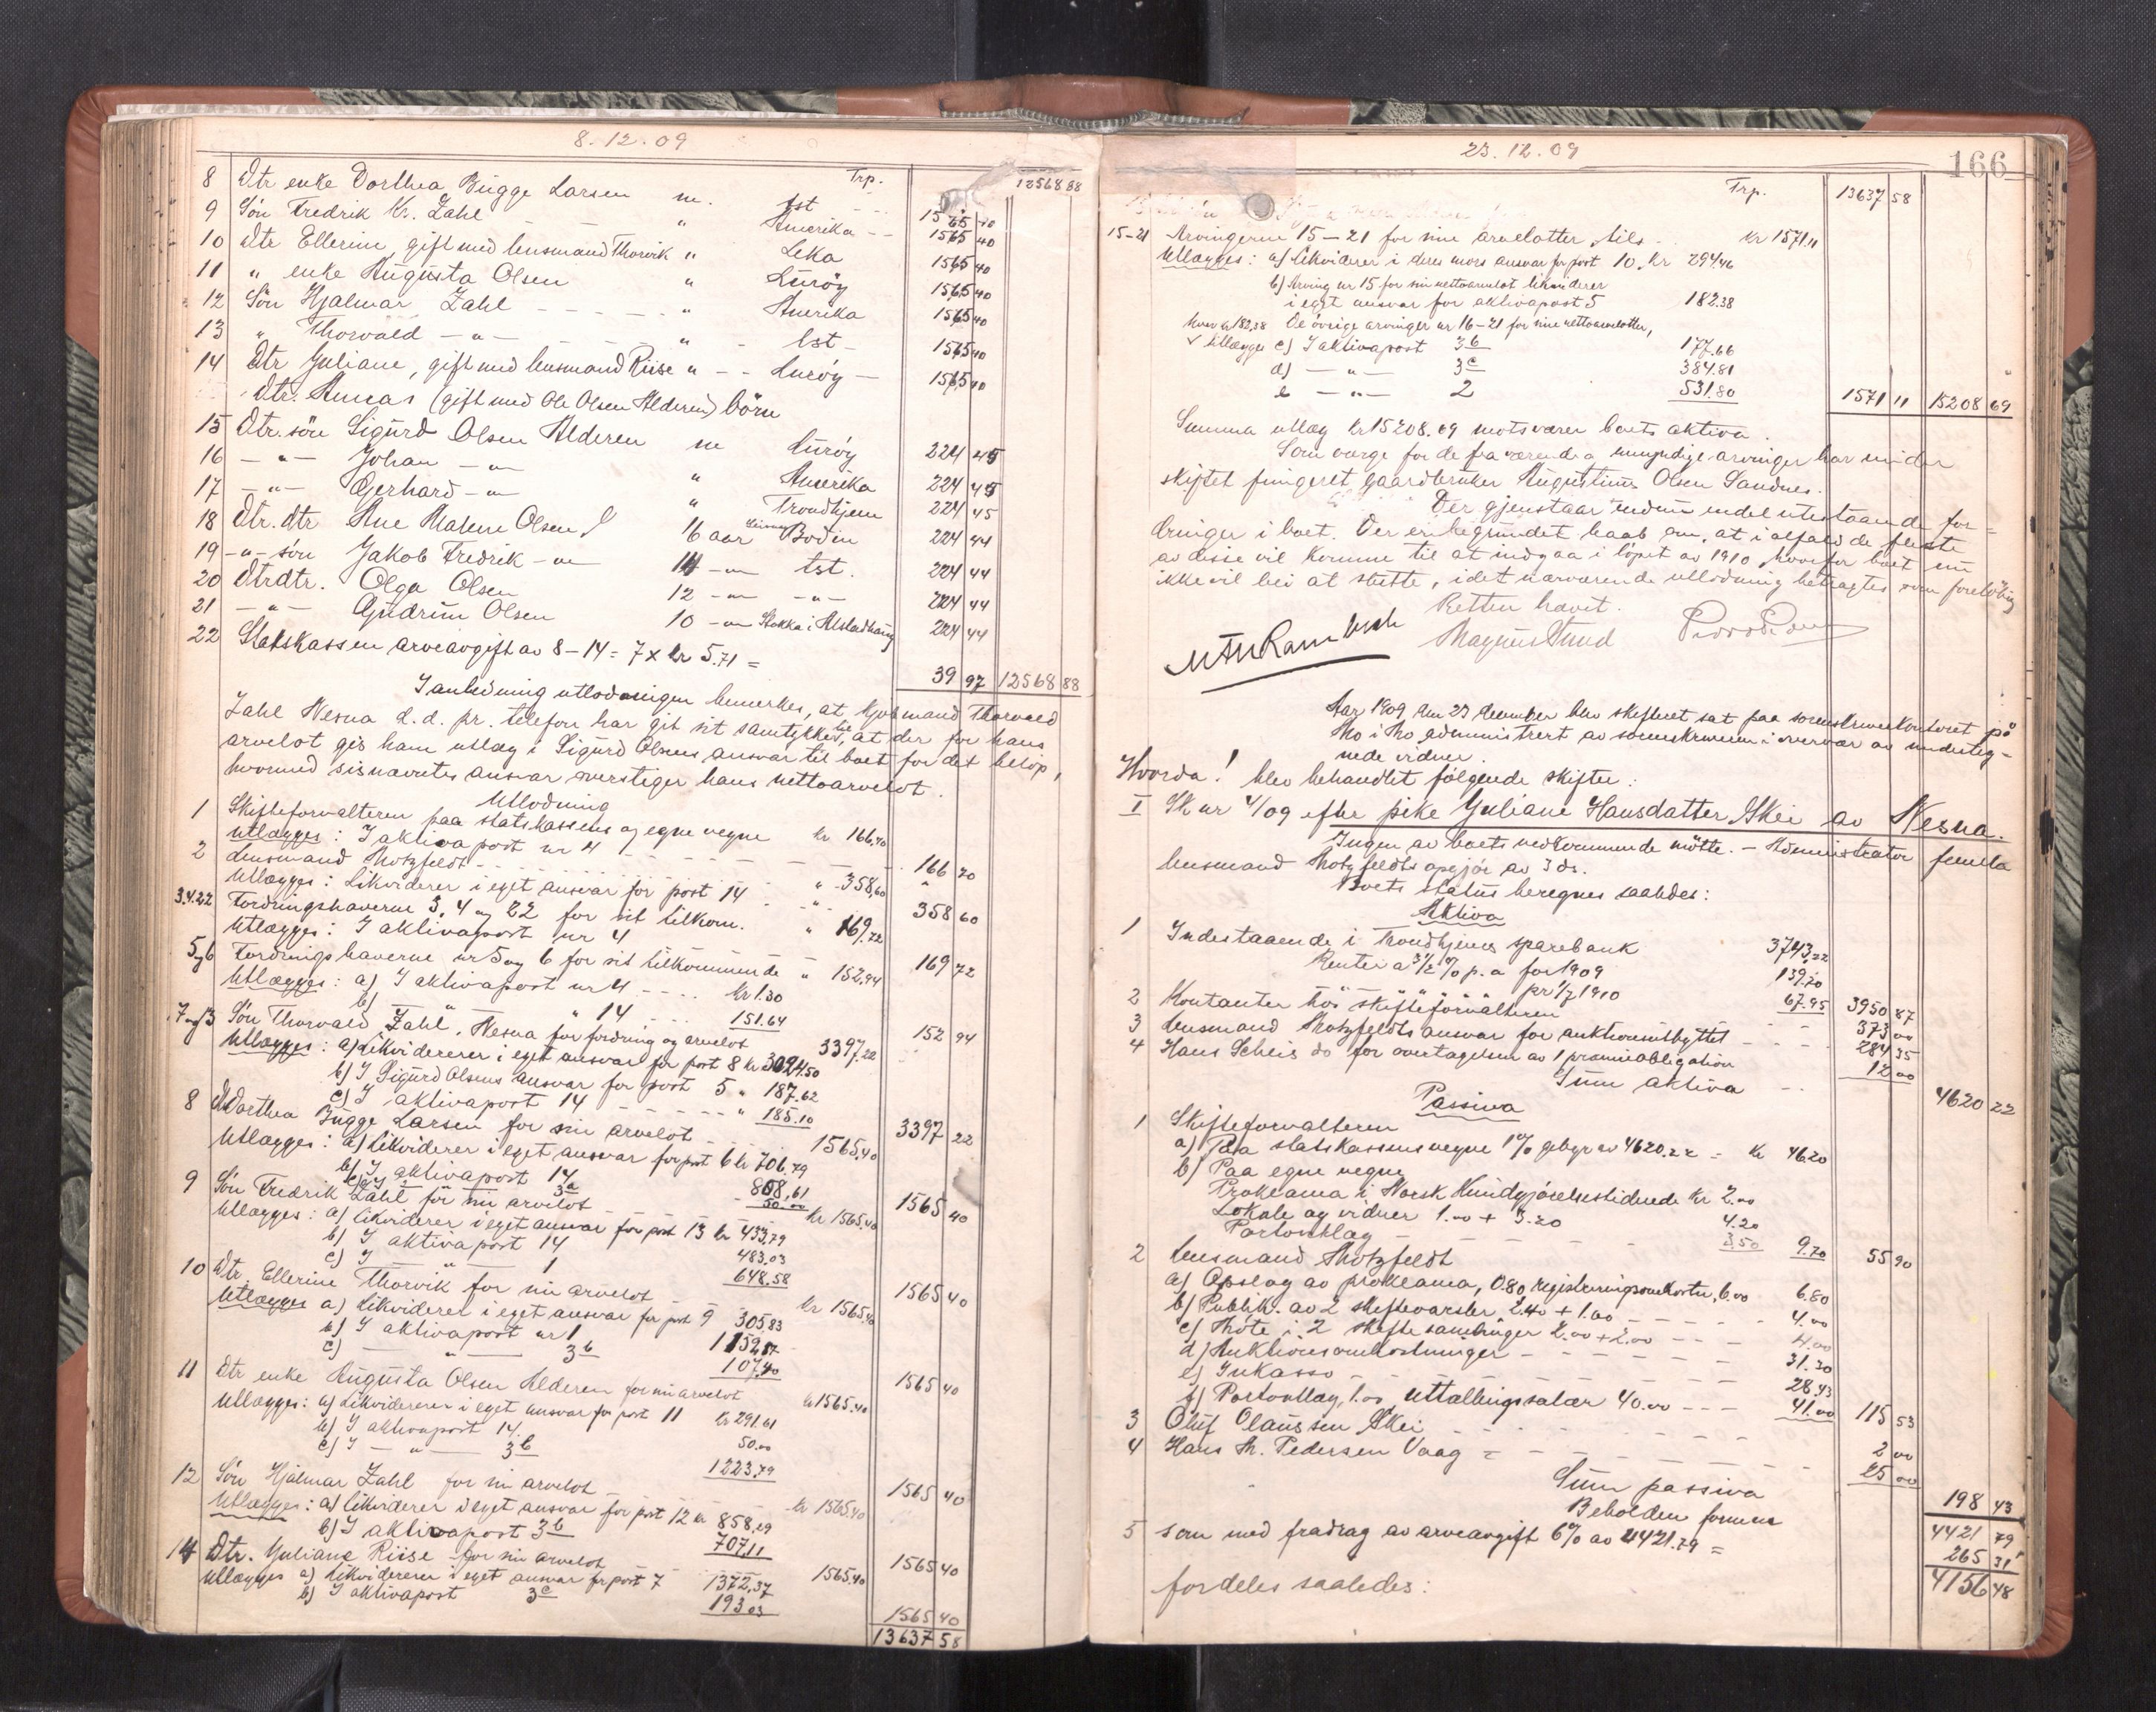 8.12.09
Trp. 12568 88
8 Dtr enke Dorthea Bugge Larsen m. tst 1565 40
9 Sön Fredrik Kr. Zahl " Amerika 1565 40
10 Dtr Ellerine, gift med lensmand Thorvik " Leka 1565 40
11 " enke Augusta Olsen " Luröy 1565 40
12 Sön Hjalmar Zahl " Amerika 1565 40
13 " Thorvald -"- " tst 1565 40
14 Dtr Juliane, gift med lensmand Riise " Luröy 1565 40
Dtr. Annas (gift med Ole Olsen Alderen) börn
15 Dtr. sön Sigurd Olsen Alderen m Luröy 224 45
16 -"- Johan -"- " Amerika 224 45
17 -"- Gerhard -"- " Trondhjem 224 45
18 Dtr. dtr Ane Malene Olsen 16 aar Bodin 224 44
19 -"- sön Jakob Fredrik -"- 14 -"- tst. 224 44
20 Dtrdtr. Olga Olsen 12 -"- -"- 224 44
21 -"- Gudrun Olsen 10 -"- Stokka i Alstadhaug 224 44
22 Statskassen arveavgift av 8-14 = 7 x kr 5.71 = 39 97 12568 88
I anledning utlodningen bemerkes, at kjöbmand Thorvald
Zahl Nesna d.d. pr. telefon har git sit samtykke til, at der for hans
arvelot gis ham utlæg i Sigurd Olsens ansvar til boet for det belöp,
hvormed sisnævntes ansvar overstiger hans nettoarvelot.
Utlodning
1 Skifteforvalteren paa statskassens og egne vegne kr 166,20
Utlægges: I aktivapost nr 4 166 20
2 Lensmand Motzfeldt " 358,60
Utlægges: Likviderer i eget ansvar for post 14 358 60
3.4.22 Fordringshaverne 3, 4 og 22 for sit tilkom. " 169,72
Utlægges: I aktivapost nr 4 169 72
5 og 6 Fordringshaverne nr 5 og 6 for sit tilkommende " 152,94
Utlægges: a) I aktivapost nr 4 kr 1.30
b) " 14 151.64 152 94
7 og 13 Sön Thorvald Zahl, Nesna for fordring og arvelot 3397.22
Utlægges: a) Likviderer i eget ansvar for post 8 kr 3024.50
b) I Sigurd Olsens ansvar for post 5 " 187.62
c) I aktivapost 14 " 185.10 3397 22
8 Dorthea Bugge Larsen for sin arvelot 1565.40
Utlægges: a) Likviderer i eget ansvar for post 6 kr 706,79
b) I aktivapost 14 808,61
3a 50.00 1565 40
9 Sön Fredrik Zahl for sin arvelot kr 1565.40
Utlægges: a) Likviderer i eget ansvar for post 13 kr 433,79
b) I aktivapost 14 483.03
c) I " 1 648.58 1565 40
10 Dtr. Ellerine Thorvik for sin arvelot kr 1565.40
Utlægges a) Likviderer i eget ansvar for post 9 305 83
b) I aktivapost nr 1 1152,17
c) " 3b 107,40 1565 40
11 Dtr enke Augusta Olsen Alderen for sin arvelot kr 1565.40
Utlægges: a) Likviderer i eget ansvar for post 11 kr 291.61
b) I aktivapost 14. 50.00
c) I -"- 3b 1223,79 1565 40
12 Sön Hjalmar Zahl for sin arvelot kr 1565.40
Utlægges: a) Likviderer i eget ansvar for post 12 kr 858,29
b) I aktivapost 3b 707,11 1565 40
14 Dtr. Juliane Riise for sin arvelot 1565.40
Utlægges a) Likviderer i eget ansvar for post 7 1372,37
b) I aktivapost 3c 193 03 1565 40
13637 58
23.12.09
166
Trp. 13637 58
15-21 Arvingerne 15-21 for sine arvelotter tils. kr 1571 11
Utlægges: a) Likviderer i deres mors ansvar for post 10. kr 294,46
b) Arving nr 15 for sin nettoarvelot likviderer
i eget ansvar for aktivapost 5 182.38
De övrige arvinger nr 16-21 for sine nettoarvelotter,
utlægges c) I aktivapost 3b 177.66
d) -"- 3c 384.81
e -"- 2 531.80 1571 11 15208 69
Summa utlæg kr 15208.69 motsvarer boets aktiva.
Som værge for de fraværende og umyndige arvinger har under
skiftet fungeret gaardbruker Augustinus Olsen Sandnes.
Der gjenstaar endnu endel utestaaende for=
dringer i boet. Der er begrundet haab om, at i alfald de fleste
av disse vil komme til at indgaa i löpet av 1910, hvorfor boet enn
ikke vil bli at slutte, idet nærværende utlodning betragtes som forelöbig
Retten hævet.
Magnus Sund
Aar 1909 den 23 december blev skifteret sat paa sorenskriverkontoret på
Mo i Mo administrert av sorenskriveren i overvær av underteg-
nede vidner.
Hvorda! blev behandlet fölgende skifter:
I Sk nr 4/09 efter pike Juliane Hansdatter Skei av Nesna.
Ingen av boets vedkommende mötte. - Administrator fremla
lensmand Motzfeldts opgjör av 3 ds.
Boets status beregnes saaledes:
Aktiva
1 Indestaaende i Trondhjems sparebank 3743,22
Renter a 3 1/2 % p. a for 1909 139.70
pr 1/7 1910 67.95 3950 87
2 Kontanter hos skifteforvalteren 373 00
3 Lensmand Motzfeldts ansvar for auktionsutbyttet 284 35
4 Hans Scheis do for overtagelsen av 1 præmieobligation 12 00
Sum aktiva 4620 22
Passiva
1 Skifteforvalteren
a) Paa statskassens vegne 1% gebyr av 4620.22 = kr 46.20
b) Paa egne vegne
Proklama i Norsk Kundgjörelsestidende kr 2.00
Lokale og vidner 1.00 + 3.20 4.20
Portoutlæg 3.50 9.70 55 90
2 Lensmand Motzfeldt
a) Opslag av proklama, 0.80, registreringsomkostn. 6.00 6.80
b) Publik. av 2 skiftevarsler 2.40 + 1.60 4.00
c) Möte i 2 skiftesamlinger 2.00 + 2.00 4.00
d) Auktionsomkostninger 31.30
e) Inkasso 28.43
g) Portoutlæg, 1.00 uttællingssalær 40.00 41.00 115 53
3 Oluf Olaussen Skei 2 00
4 Hans M. Pedersen Vaag 25 00
Sum passiva 198 43
Beholden formue 4421 79
5 som med fradrag av arveavgift 6% av 4421.79 = 265 31
4156 48
fordeles saaledes: